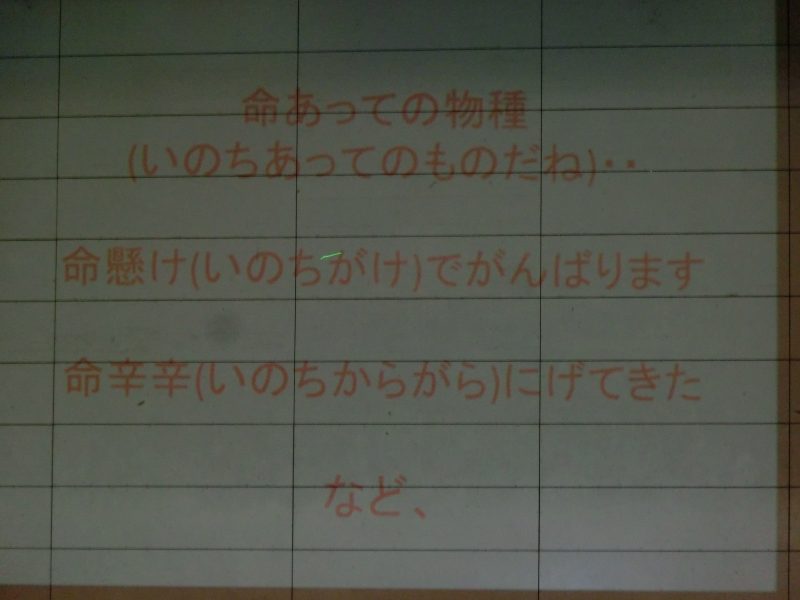 命あっての物種
(いのちあってのものだね)・・
命懸け(いのちがけ)でがんばります
命辛辛(いのちからがら)にげてきた
など、